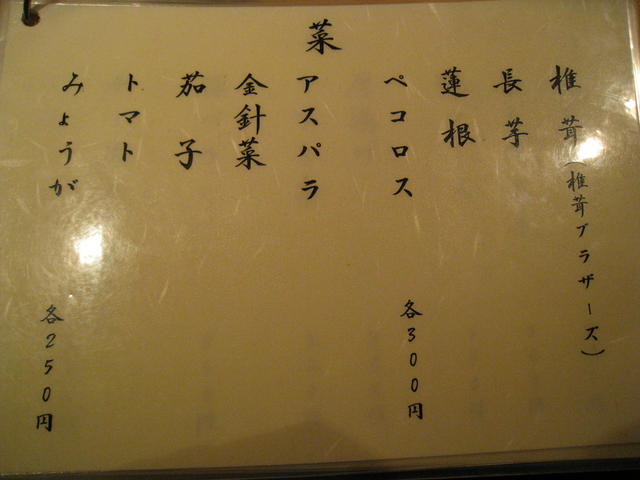 菜
椎茸(椎茸ブラザーズ)
長芋
蓮根
ペコロス
各300円
アスパラ
金針菜
茄子
トマト
みょうが
各250円